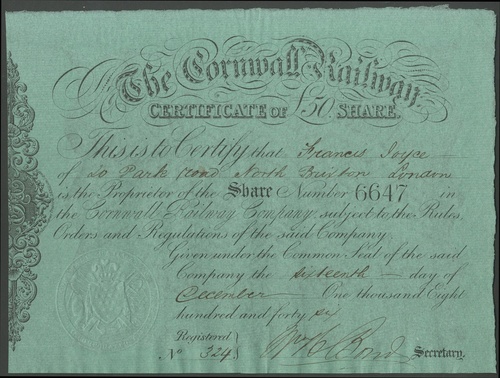 The Cornwall Railway.
CERTIFICATE OF £50 SHARE.
This is to Certify that Francis Joyce
of 20 Park Road North Brixton London
is the Proprietor of the Share Number 6647 in
the Cornwall Railway Company, subject to the Rules,
Orders and Regulations of the said Company.
Given under the Common Seal of the said
Company the sixteenth day of
December One thousand Eight
hundred and forty six
Registered
No 324
Secretary.